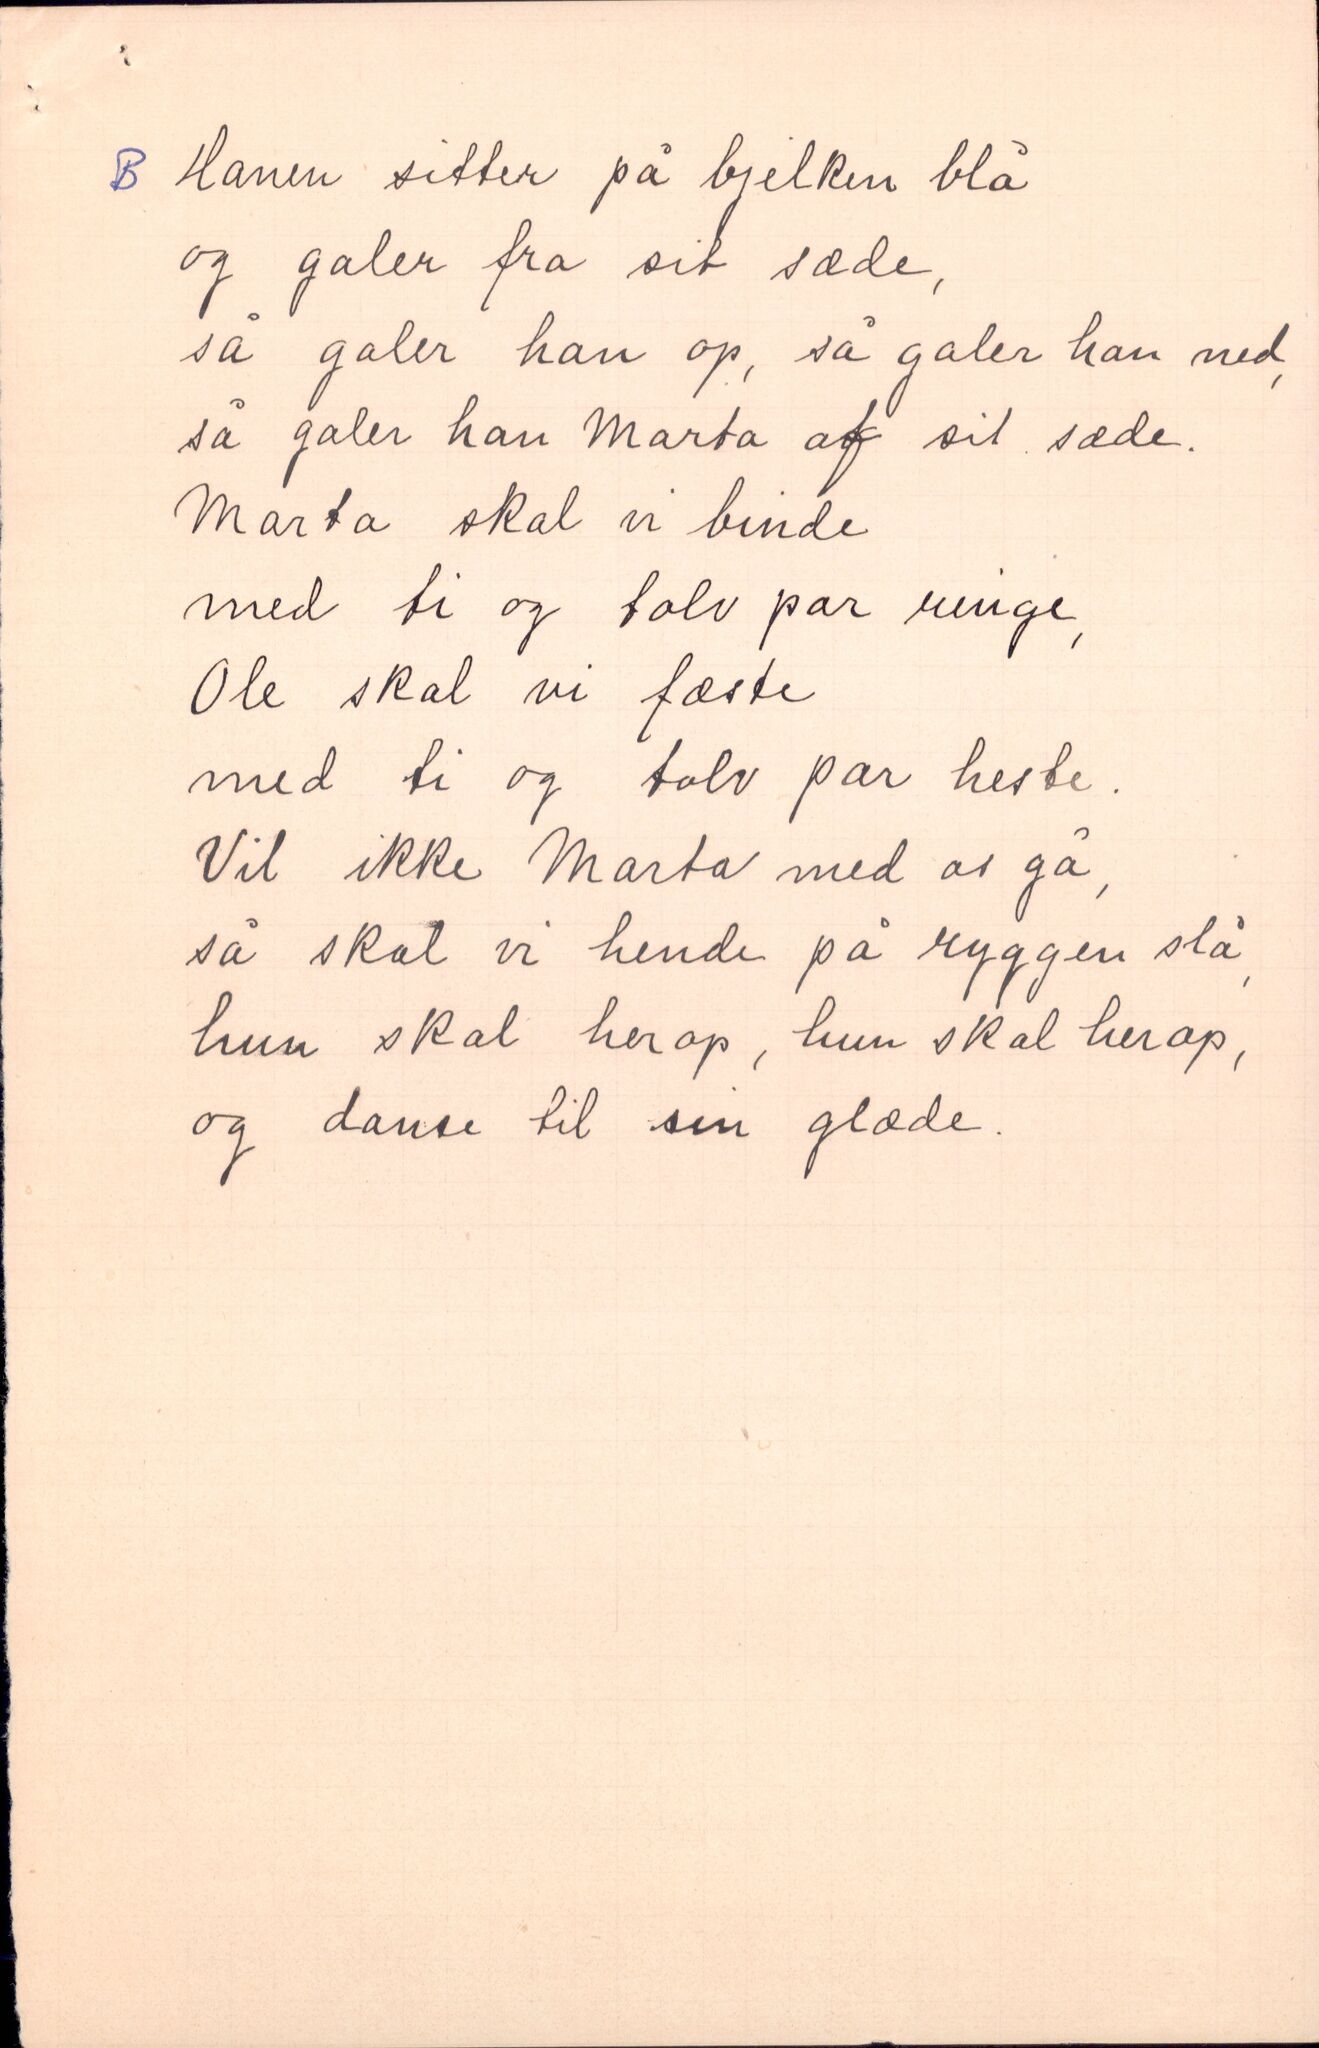 B Hanen sitter på bjelken blå
og galer fra sit sæde,
så galer han op, så galer han ned,
så galer han Marta af sit sæde.
Marta skal vi binde
med ti og tolv par ringe,
Ole skal vi fæste
med ti og tolv par heste.
Vil ikke Marta med os gå,
så skal vi hende på ryggen slå,
hun skal herop, hun skal herop,
og danse til sin glæde.